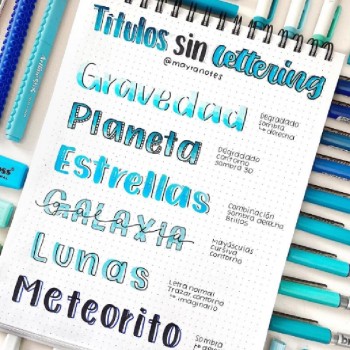 Títulos sin lettering
@mayranotes
Gravedad
Degradado
sombra
derecha
Planeta
Degradado
contorno
sombra 3D
Estrellas
Combinación
sombra derecha
Brillos
GALAXIA
Galaxia
Mayúsculas
cursiva
contorno
Lunas
Letra normal
Trazar contorno
imaginario
Meteorito
Sombra